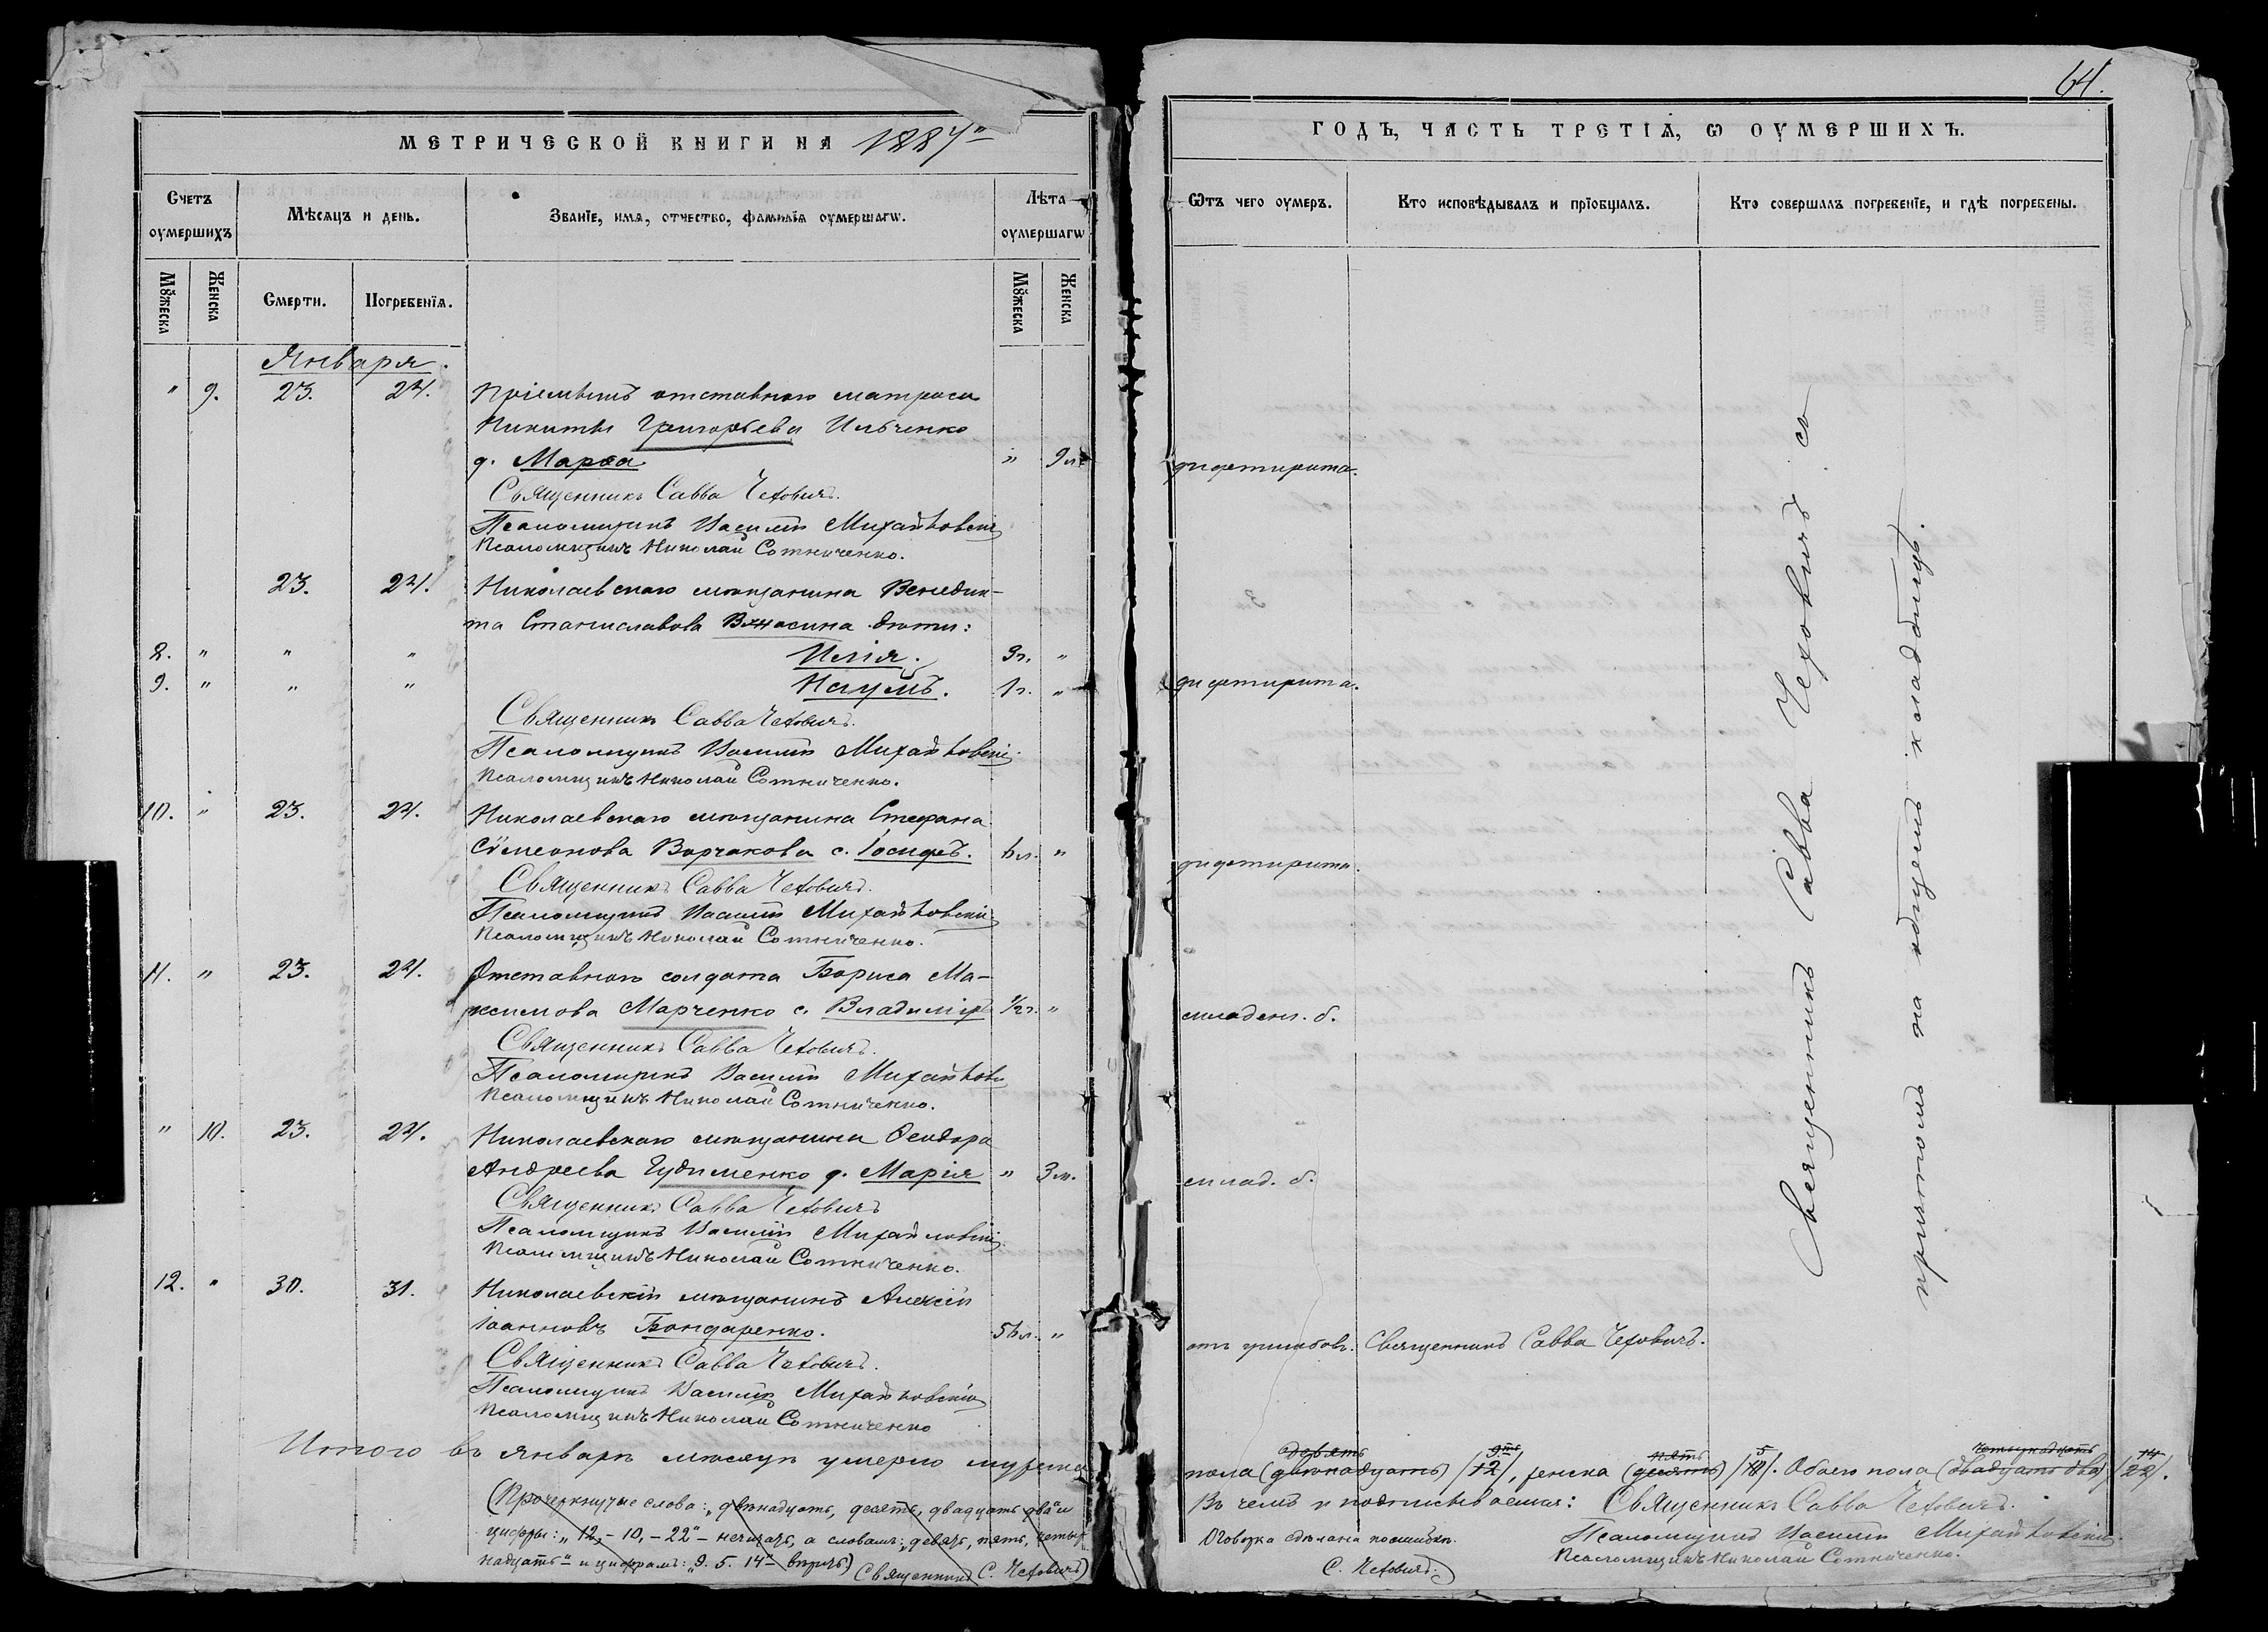 МЕТРИЧЕСКОЙ КНИГИ НА 1887й
Счетъ оумершихъ
Мѣсяцъ и день.
Званіе, имя, отчество, фамилія оумершагѡ.
Лѣта оумершагѡ
Мꙋжеска
Женска
Смерти.
Погребенія.
Мꙋжеска
Женска
Января.
" 9. 23. 24. Пріемышъ отставного матроса
Никиты Григорьева Ильченко
д. Марѳа " 9 л.
Священникъ Савва Чеховичъ.
Псаломщикъ Василій Михайловскій
Псаломщикъ Николай Сотниченко.
23. 24. Николаевскаго мѣщанина Венедик-
та Станиславова дѣти:
8. " " " Илія. 3 г. "
9. " " " Наумъ. 1 г. "
Священникъ Савва Чеховичъ.
Псаломщикъ Василій Михайловскій
Псаломщикъ Николай Сотниченко.
10. " 23. 24. Николаевскаго мѣщанина Стефана
Сѵмеонова Варчакова с. Іосифъ. 6 л. "
Священникъ Савва Чеховичъ.
Псаломщикъ Василій Михайловскій
Псаломщикъ Николай Сотниченко.
11. " 23. 24. Отставного солдата Бориса Ма-
ксимова Марченко с. Владиміръ 1/2 г. "
Священникъ Савва Чеховичъ.
Псаломщикъ Василій Михайловскій
Псаломщикъ Николай Сотниченко.
" 10. 23. 24. Николаевскаго мѣщанина Ѳеодора
Андреева Гудименко д. Марія " 3 м.
Священникъ Савва Чеховичъ
Псаломщикъ Василій Михайловскій
Псаломщикъ Николай Сотниченко.
12. " 30. 31. Николаевскій мѣщанинъ Алексій
Іоанновъ Бондаренко. 56 л. "
Священникъ Савва Чеховичъ.
Псаломщикъ Василій Михайловскій
Псаломщикъ Николай Сотниченко
Итого въ январѣ мѣсяцѣ умерло мужеска
(Прочеркнутые слова: „двѣнадцать, десять, двадцать два" и
цифры: „12, – 10, – 22" – нечитать, а словамъ: „девять, пять, четыр
надцать" и цифрамъ: „9. 5. 14" – вѣрить) Священникъ С. Чеховичъ)
64.
ГОДЪ, ЧАСТЬ ТРЕТІЯ, Ѡ ОУМЕРШИХЪ.
Ѿтъ чего оумеръ.
Кто исповѣдывалъ и пріобщалъ.
Кто совершалъ погребеніе, и гдѣ погребены.
дифтирита.
дифтирита.
дифтирита.
младен. б.
млад. б.
Священникъ Савва Чеховичъ.
Священникъ Савва Чеховичъ со
причтомъ на общемъ кладбищѣ.
девять 9ть пять 5 четырнадцать 14
пола (двѣнадцать) /12/, женска (десять) /10/. Обоего пола (двадцать два) /22/.
Въ чемъ и подписываемся: Священникъ Савва Чеховичъ.
Оговорка сдѣлана по ошибкѣ.
Псаломщикъ Василій Михайловскій.
С. Чеховичъ.
Псаломщикъ Николай Сотниченко.